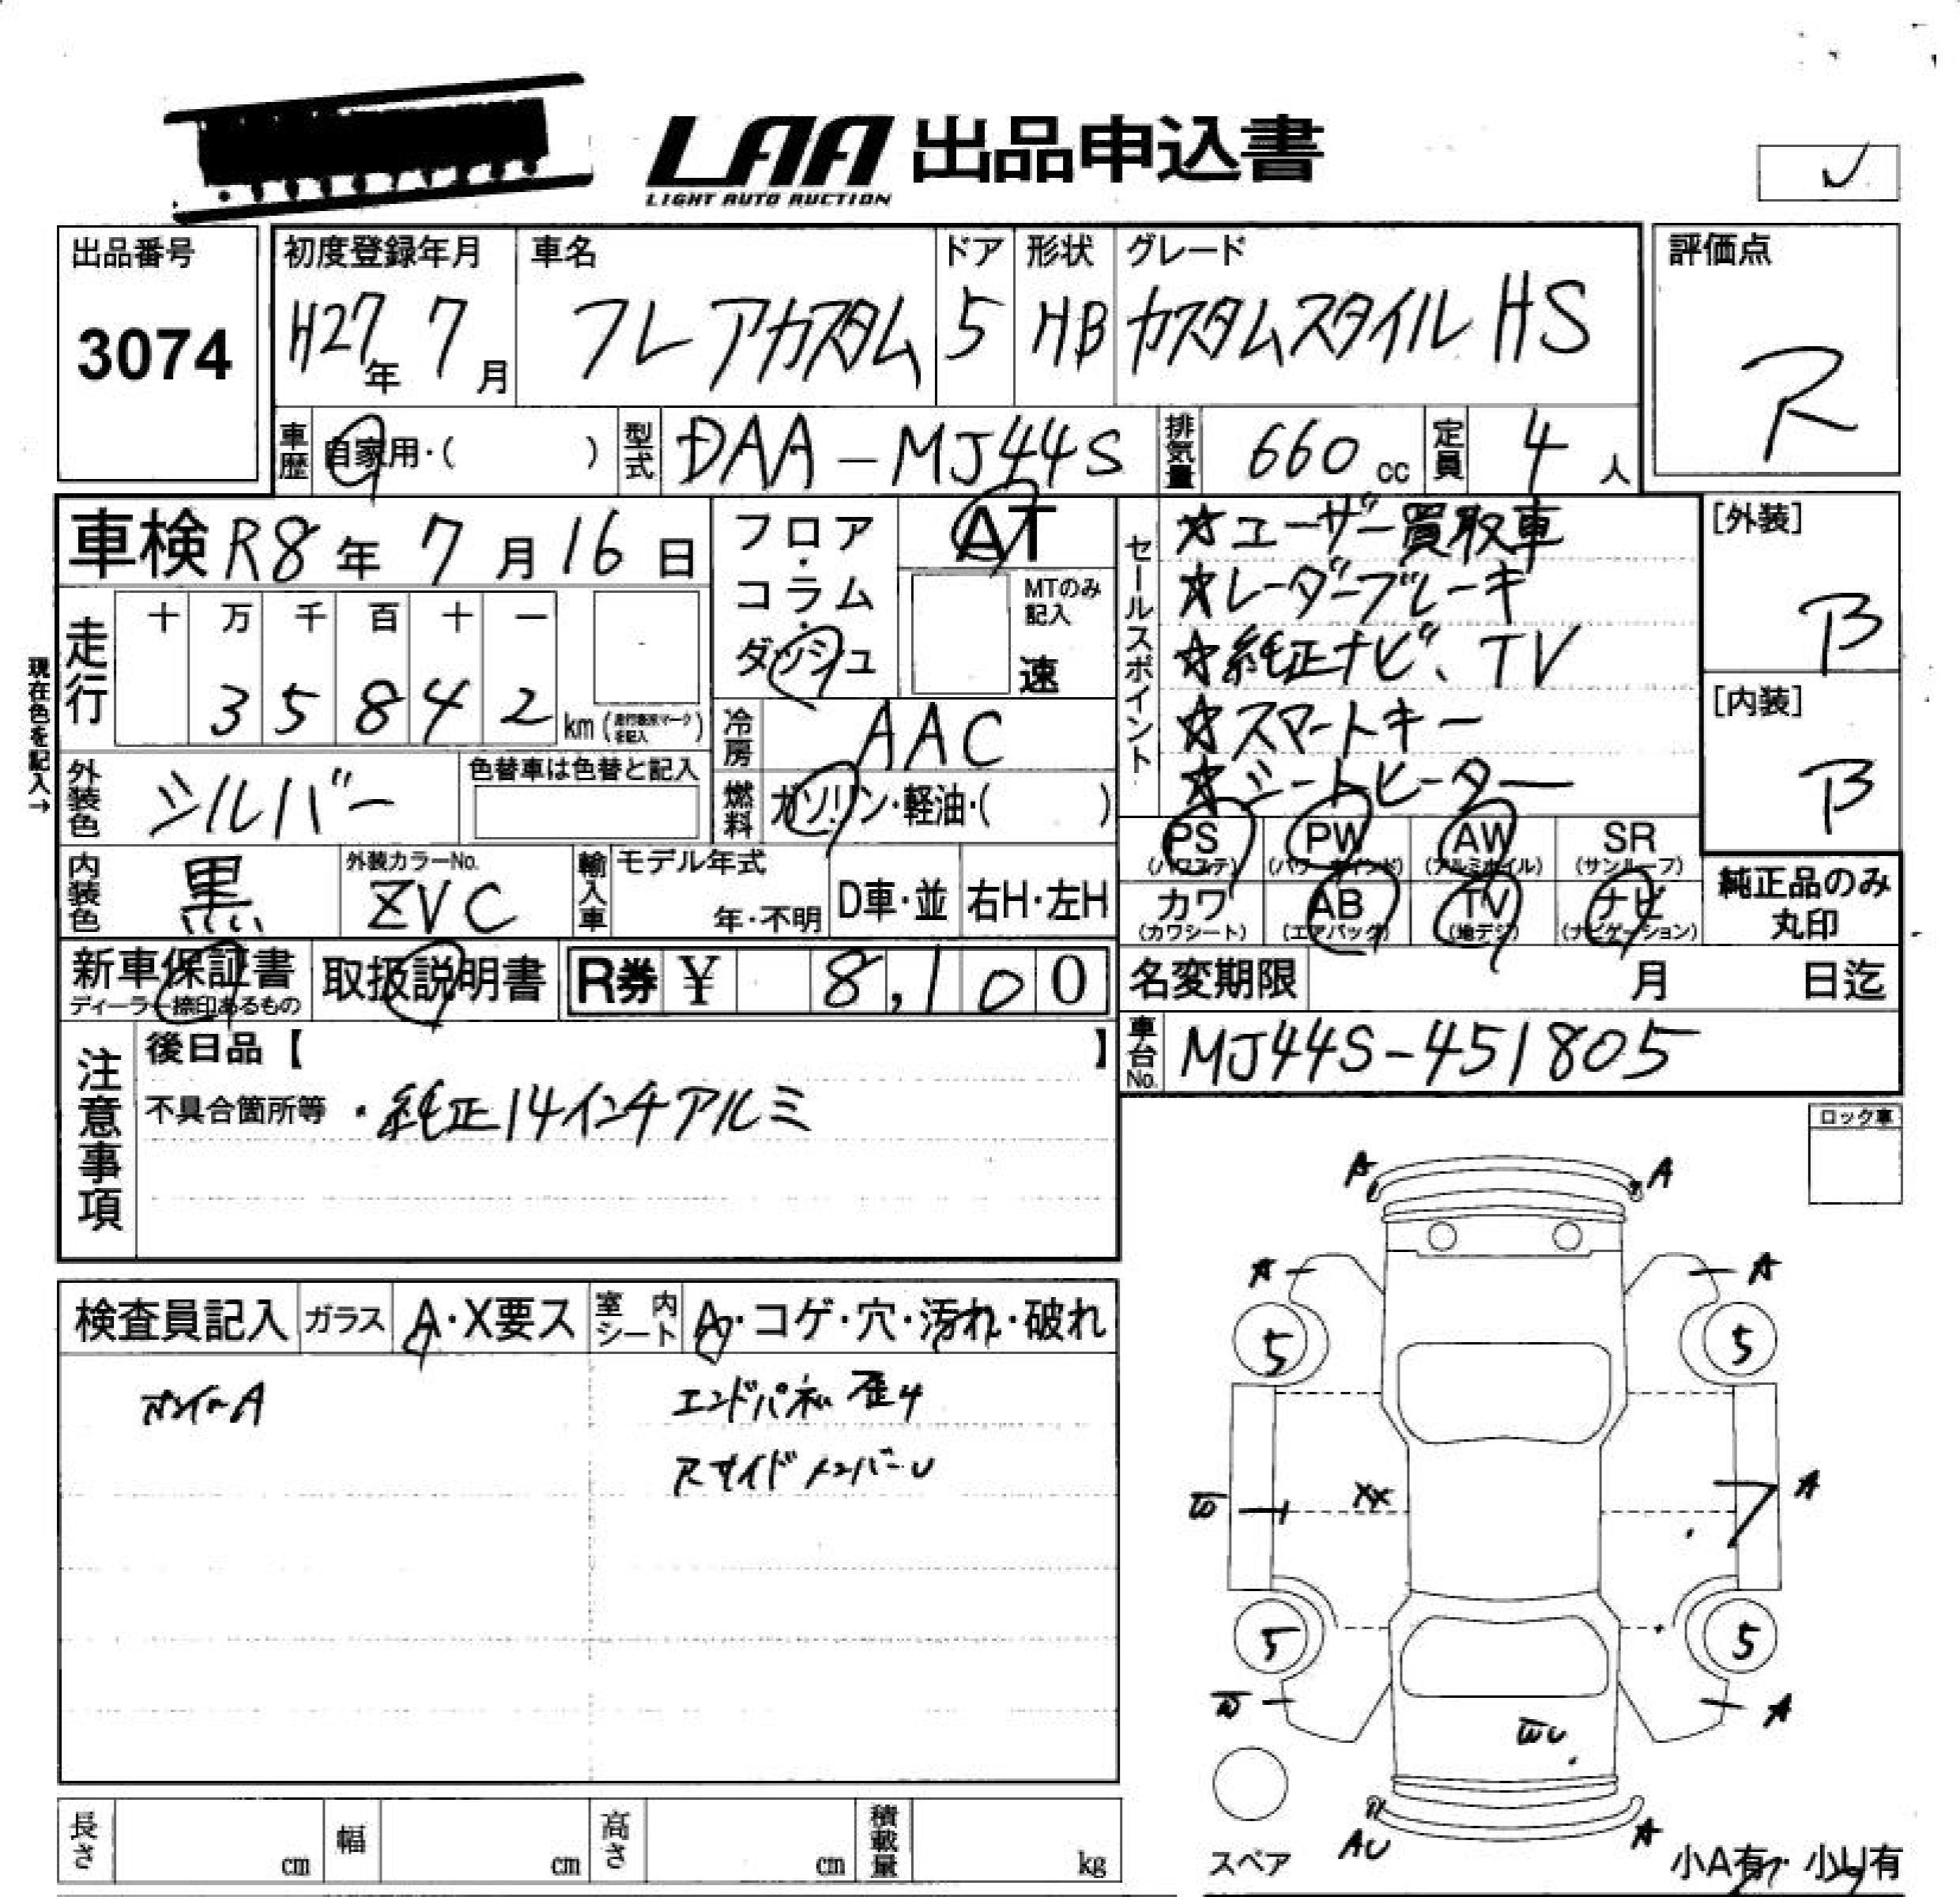 LAA 出品申込書
LIGHT AUTO AUCTION
出品番号
3074
初度登録年月
H27年 7月
車名
フレアカスタム
ドア
5
形状
HB
グレード
カスタムスタイル HS
評価点
R
車歴 自家用・( )
型式 DAA-MJ44S
排気量 660 cc
定員 4 人
車検 R8年 7月 16日
フロア・コラム・ダッシュ
AT
MTのみ記入
速
セールスポイント
☆ユーザー買取車
☆レーダーブレーキ
☆純正ナビ、TV
☆スマートキー
☆シートヒーター
[外装]
B
[内装]
B
現在色を記入→
走行
十 万 千 百 十 一
3 5 8 4 2 km
冷房 AAC
外装色 シルバー
色替車は色替と記入
燃料 ガソリン・軽油・( )
内装色 黒
外装カラーNo.
ZVC
輸入車
モデル年式
年・不明
D車・並
右H・左H
PS (パワステ)
PW (パワーウインド)
AW (アルミホイル)
SR (サンルーフ)
カワ (カワシート)
AB (エアバッグ)
TV (地デジ)
ナビ (ナビゲーション)
純正品のみ丸印
新車保証書
ディーラー捺印あるもの
取扱説明書
R券 ¥ 8,100
名変期限 月 日迄
車台No. MJ44S-451805
注意事項
後日品【 】
不具合箇所等 ・純正14インチアルミ
ロック車
検査員記入
ガラス A・X要ス
室内シート A・コゲ・穴・汚れ・破れ
エンドパネル 歪み
RサイドメンバーU
A A
A A
5 5
XX
A
5 5
A
AU A
スペア
小A有・小U有
長さ cm
幅 cm
高さ cm
積載量 kg